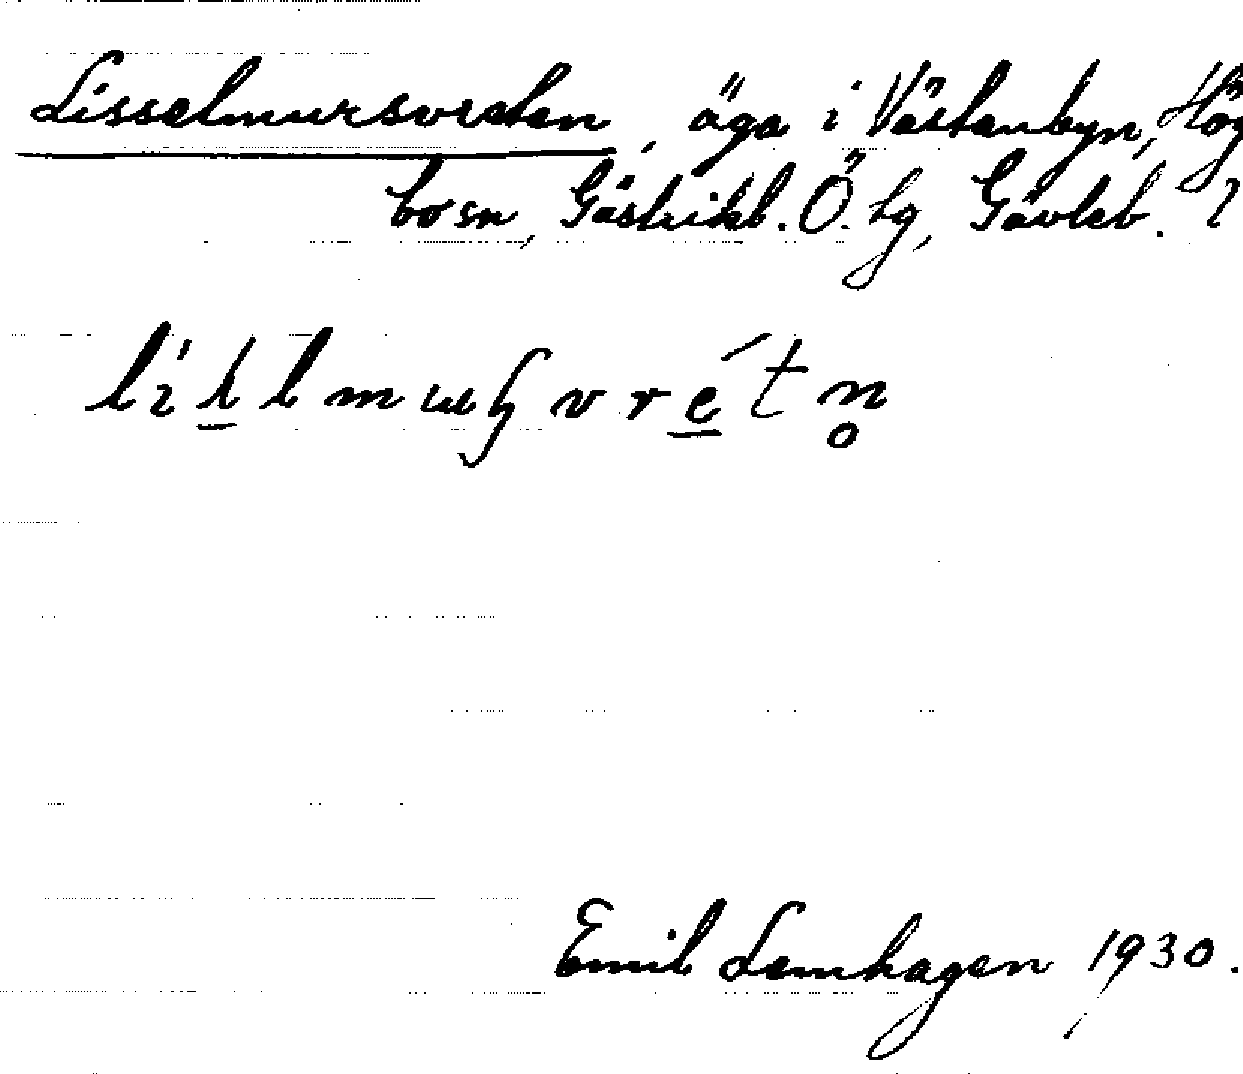 Lisselmursvreten, äga i Västanbyn, Hög
bosn, Gästrikl. Ö. tg, Gävleb. l
Emil Lemhagen 1930.